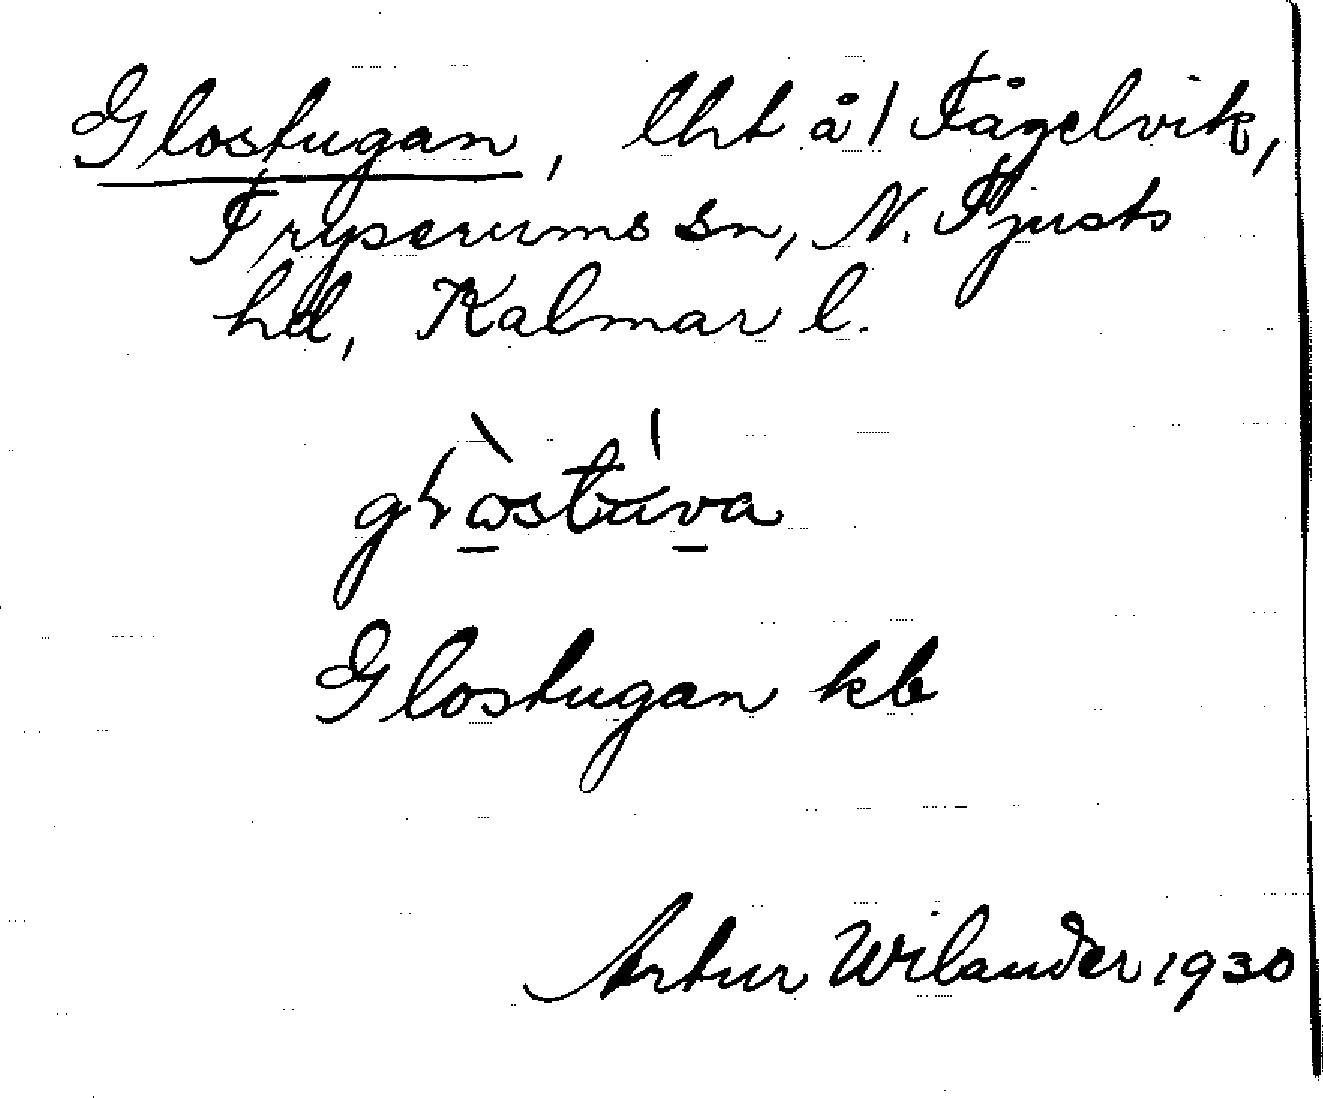 Glostugan, lht å/ Fågelvik,
Tryserums sn, N. Tjusts
hd, Kalmar l.
Glostugan kb
Artur Wilander 1930